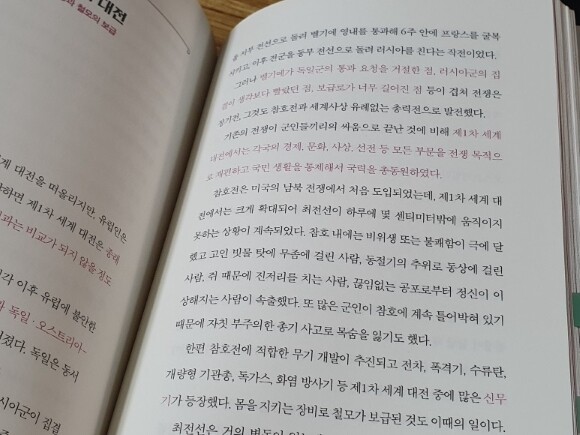 대전
철모의 보급
계 대전을 떠올리지만, 유럽인은
하면 제1차 세계 대전은
과는 비교가 되지 않을 정도
각 이후 유럽에 불안한
와 독일·오스트리아-
졌다. 독일은 동서
러시아군이 집결
을 서부 전선으로 돌려 벨기에 영내를 통과해 6주 안에 프랑스를 굴복
시키고, 이후 전군을 동부 전선으로 돌려 러시아를 친다는 작전이었다.
그러나 벨기에가 독일군의 통과 요청을 거절한 점, 러시아군의 집
결이 생각보다 빨랐던 점, 보급로가 너무 길어진 점 등이 겹쳐 전쟁은
장기전, 그것도 참호전과 세계사상 유례없는 총력전으로 발전했다.
기존의 전쟁이 군인들끼리의 싸움으로 끝난 것에 비해 제1차 세계
대전에서는 각국의 경제, 문화, 사상, 선전 등 모든 부문을 전쟁 목적으
로 재편하고 국민 생활을 통제해서 국력을 총동원하였다.
참호전은 미국의 남북 전쟁에서 처음 도입되었는데, 제1차 세계 대
전에서는 크게 확대되어 최전선이 하루에 몇 센티미터밖에 움직이지
못하는 상황이 계속되었다. 참호 내에는 비위생 또는 불쾌함이 극에 달
했고 고인 빗물 탓에 무좀에 걸린 사람, 동절기의 추위로 동상에 걸린
사람, 쥐 때문에 진저리를 치는 사람, 끊임없는 공포로부터 정신이 이
상해지는 사람이 속출했다. 또 많은 군인이 참호에 계속 틀어박혀 있기
때문에 자칫 부주의한 총기 사고로 목숨을 잃기도 했다.
한편 참호전에 적합한 무기 개발이 추진되고 전차, 폭격기, 수류탄,
개량형 기관총, 독가스, 화염 방사기 등 제1차 세계 대전 중에 많은 신무
기가 등장했다. 몸을 지키는 장비로 철모가 보급된 것도 이때의 일이다.
최전선은 거의 변동이